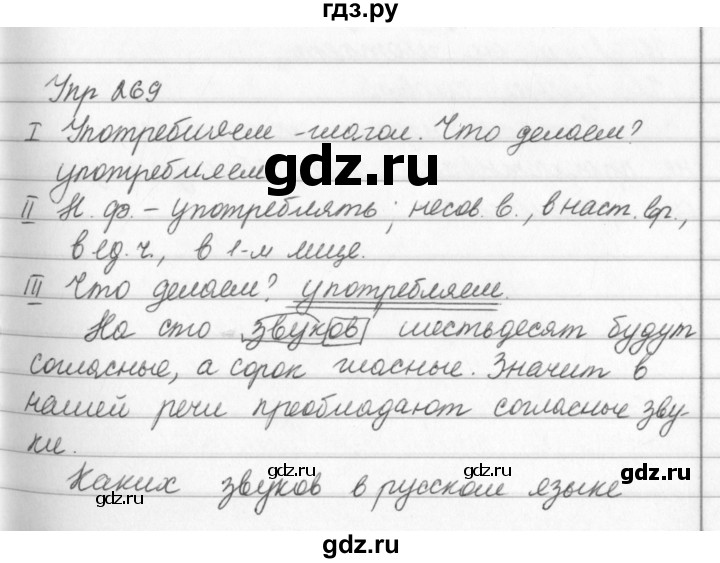 гдз.ру
Упр 269
I Употребляем -глагол. Что делаем?
употребляем
gdz.ru
II Н. ф. - употреблять; несов. в., в наст. вр.,
в ед. ч., в 1-м лице.
III Что делаем? употребляем.
На сто звуков шестьдесят будут
согласные, а сорок гласные. Значит в
нашей речи преобладают согласные зву-
ки.
gdz.ru gdz.ru gdz.ru
Каких звуков в русском языке
gdz.ru gdz.ru
gdz.ru